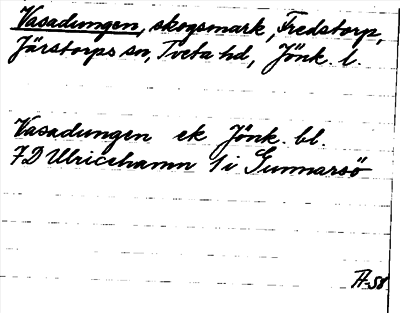 Vasadungen, skogsmark, Fredstorp,
Järstorps sn, Tveta hd, Jönk. l.
Vasadungen ek Jönk. bl.
7D Ulricehamn 1i Gunnarsö